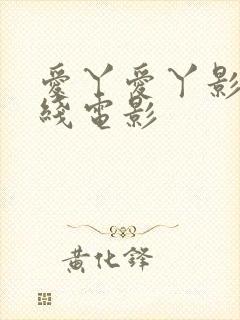 愛丫愛丫影
綫電影
黄化鋒